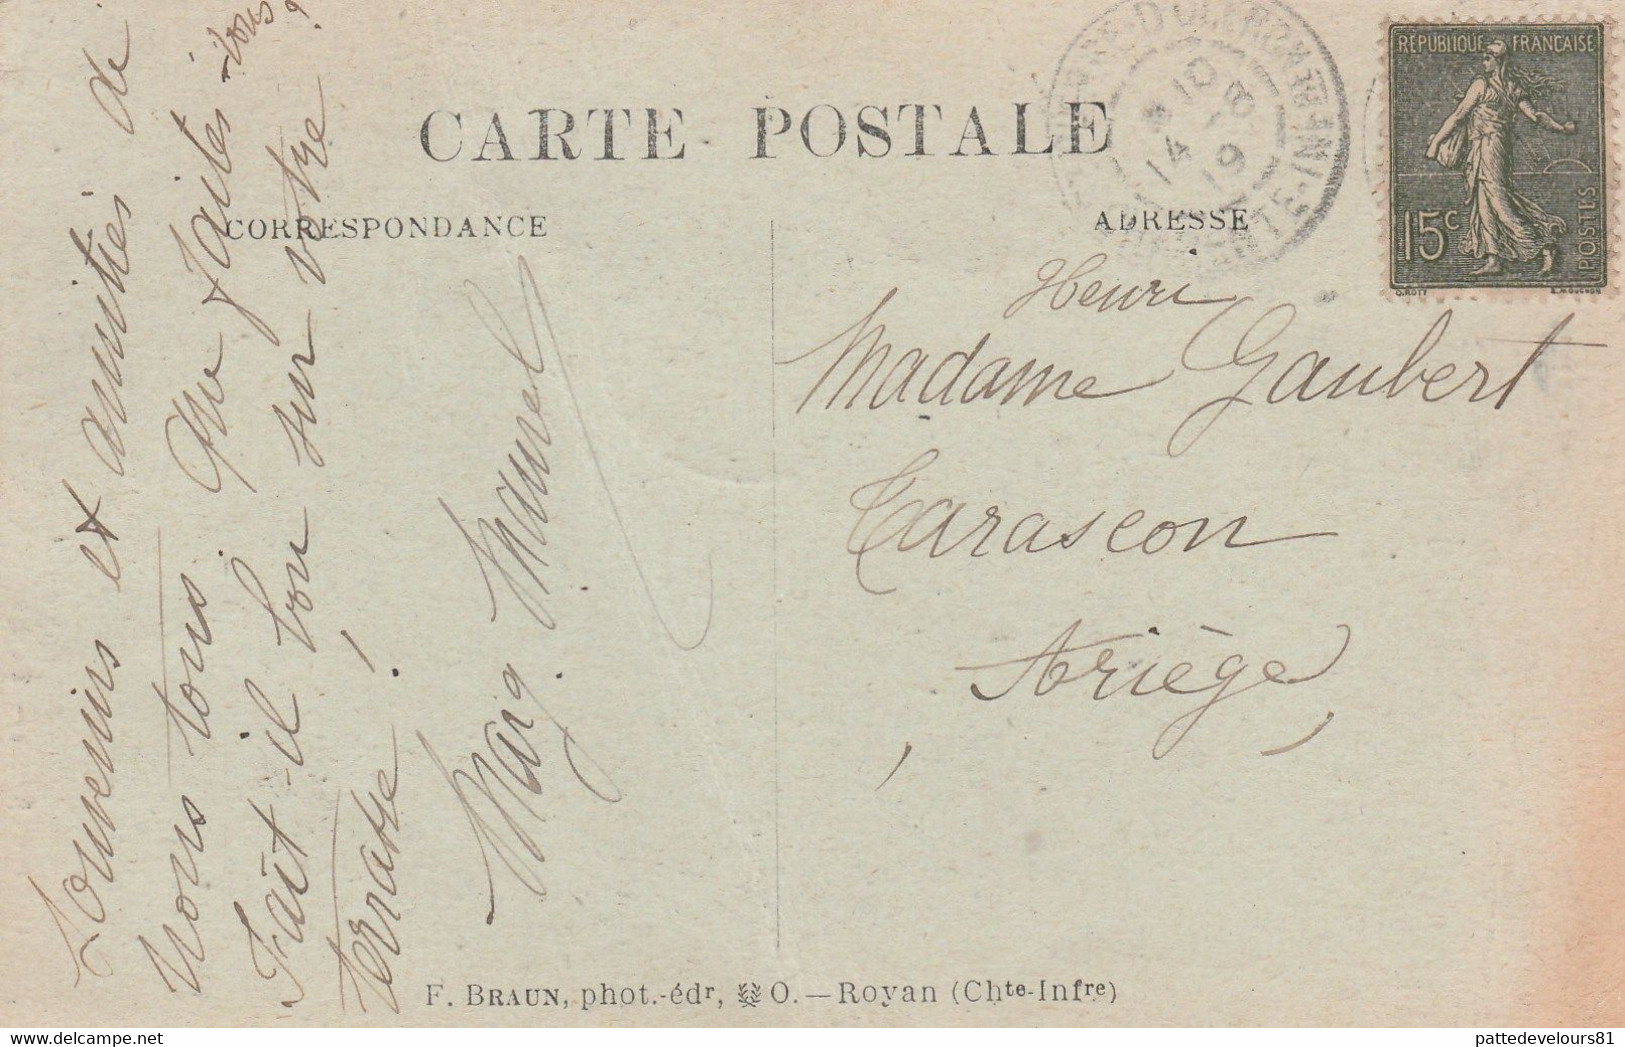 CARTE POSTALE
CORRESPONDANCE
ADRESSE
RÉPUBLIQUE FRANÇAISE
15c
POSTES
O. ROTY
E. MOUCHON
10
14 - 8
19
Souvenirs et amitiés de
nous tous. Que faites-vous ?
Fait-il bon sur votre
terrasse !
Marg. Maurel
Henri
Madame Gaubert
Tarascon
Ariège
F. BRAUN, phot.-édr, O. — Royan (Chte-Infre)
pattedevelours81